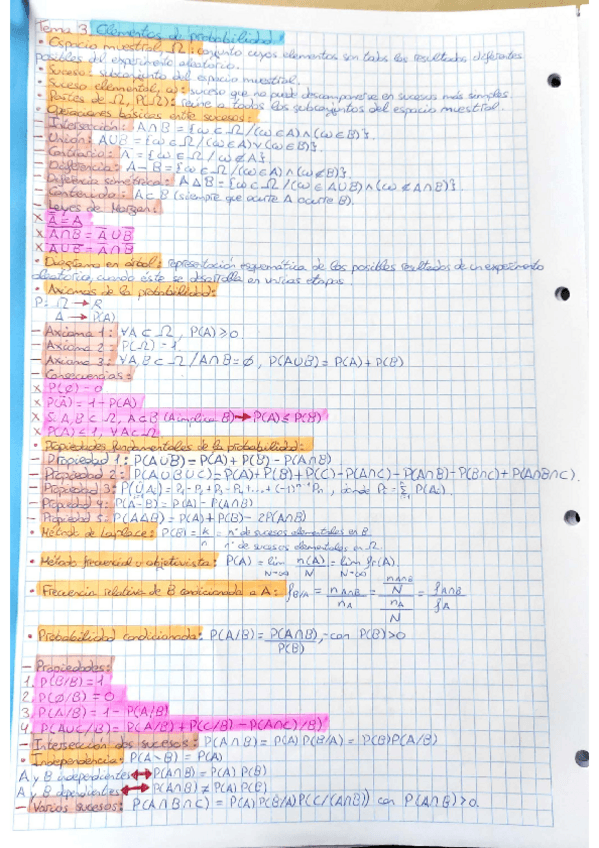 Tema 3 Elementos de probabilidad
• Espacio muestral, Ω: conjunto cuyos elementos son todos los resultados diferentes
posibles del experimento aleatorio.
• Suceso: subconjunto del espacio muestral.
• Suceso elemental, ω: suceso que no puede descomponerse en sucesos más simples.
• Partes de Ω, P(Ω): reúne a todos los subconjuntos del espacio muestral.
• Operaciones básicas entre sucesos:
— Intersección: A∩B = {ω ⊂ Ω / (ω ∈ A) ∧ (ω ∈ B)}.
— Unión: A∪B = {ω ⊂ Ω / (ω ∈ A) ∨ (ω ∈ B)}.
— Contrario: Ā = {ω ⊂ Ω / ω ∉ A}
— Diferencia: A−B = {ω ⊂ Ω / (ω ∈ A) ∧ (ω ∉ B)}.
— Diferencia simétrica: A∆B = {ω ⊂ Ω / (ω ∈ A∪B) ∧ (ω ∉ A∩B)}.
— Contenido: A⊂B (siempre que ocurre A ocurre B).
— Leyes de Morgan:
× A̿ = A
× \overline{A∩B} = Ā∪B̄
× \overline{A∪B} = Ā∩B̄
• Diagrama en árbol: representación esquemática de los posibles resultados de un experimento
aleatorio, cuando éste se desarrolla en varias etapas.
• Axiomas de la probabilidad:
P: Ω → R
A → P(A)
— Axioma 1: ∀A ⊂ Ω, P(A) ≥ 0
— Axioma 2: P(Ω) = 1
— Axioma 3: ∀A, B ⊂ Ω / A∩B = ∅, P(A∪B) = P(A) + P(B)
— Consecuencias:
× P(∅) = 0
× P(Ā) = 1 − P(A)
× Si A, B ⊂ Ω, A⊂B (A implica B) → P(A) ≤ P(B)
× P(A) ≤ 1, ∀A ⊂ Ω
• Propiedades fundamentales de la probabilidad:
— Propiedad 1: P(A∪B) = P(A) + P(B) − P(A∩B)
— Propiedad 2: P(A∪B∪C) = P(A) + P(B) + P(C) − P(A∩C) − P(A∩B) − P(B∩C) + P(A∩B∩C).
— Propiedad 3: P(∪Aᵢ) = P₁ − P₂ + P₃ − P₄ + ... + (−1)ⁿ⁻¹Pₙ, donde
— Propiedad 4: P(A−B) = P(A) − P(A∩B)
— Propiedad 5: P(A∆B) = P(A) + P(B) − 2P(A∩B)
• Método de Laplace: P(B) = k/n = nº de sucesos elementales en B / nº de sucesos elementales en Ω
• Método frecuencial u objetivista: P(A) = lim N→∞ n(A)/N = lim N→∞ fr(A).
• Frecuencia relativa de B condicionada a A: f B/A = n A∩B / n A = (n A∩B / N) / (n A / N) = f A∩B / f A
• Probabilidad condicionada: P(A/B) = P(A∩B) / P(B), con P(B) > 0
— Propiedades:
1. P(B/B) = 1
2. P(∅/B) = 0
3. P(Ā/B) = 1 − P(A/B)
4. P(A∪C/B) = P(A/B) + P(C/B) − P(A∩C)/B)
— Intersección dos sucesos: P(A∩B) = P(A) P(B/A) = P(B) P(A/B)
• Independencia: = P(A)
A y B independientes ↔ P(A∩B) = P(A) P(B)
A y B dependientes ↔ P(A∩B) ≠ P(A) P(B)
— Varios sucesos: P(A∩B∩C) = P(A) P(B/A) P(C/(A∩B)) con P(A∩B) > 0.